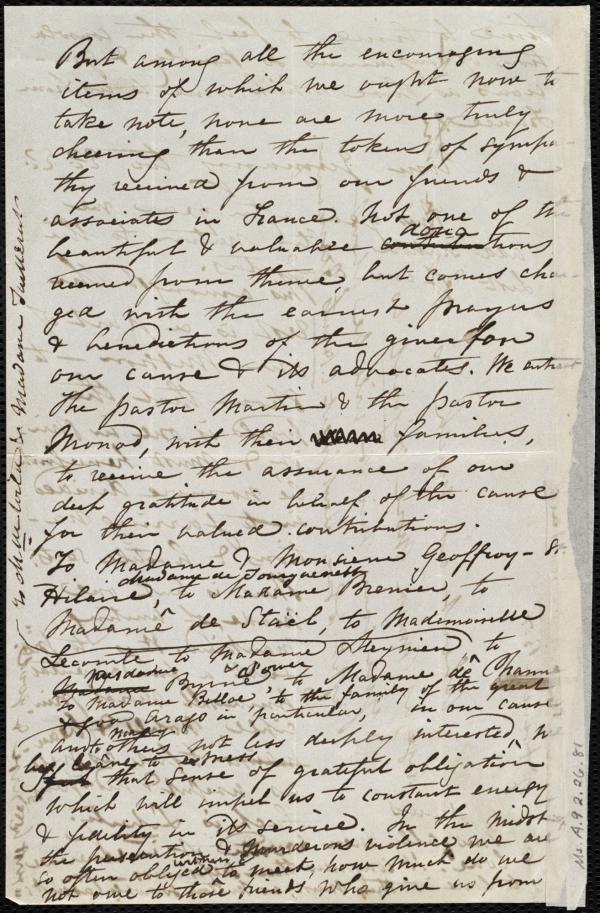 But among all the encouraging
items of which we ought now to
take note, none are more truly
cheering than the tokens of sympa
thy received from our friends &
associates in France. Not one of th
beautiful & valuable contributions
dona
received from thence, but comes cha
ged with the earnest prayers
& benedictions of the giver for
our cause & its advocates. We entreat
the pastor Martin & the pastor
Monod, with their families,
to receive the assurance of our
deep gratitude in behalf of the cause
for their valued contributions.
To Madame & Monsieur Geoffroy-St.
Madame de
Hilaire, to Madame Brenier, to
Madame de Staël, to Mademoiselle
Lecomte to Madame Meynieu, to
Madame Byrne, to Madame de
to Madame Belloc, to the family of the great
Arago in particular, in our cause
and many others not less deeply interested,
leave to witness
that sense of grateful obligation
which will impel us to constant energy
& fidelity in its service. In the midst
the persecution & murderous violence we are
so often obliged to meet, how much do we
not owe to those friends who give us from
to Madame
Ms. A.9.2.26.81